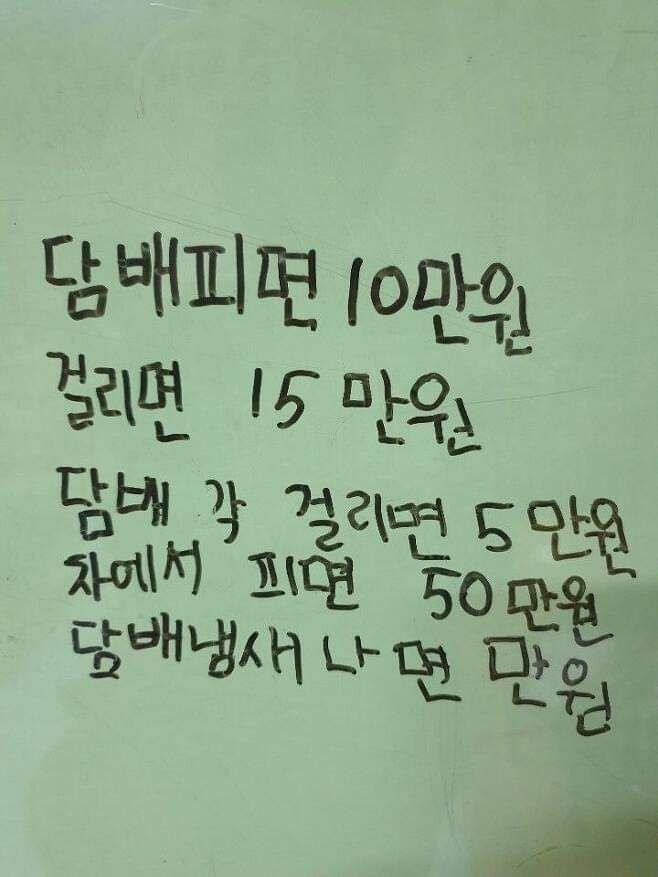 담배피면 10만원
걸리면 15만원
담배 각 걸리면 5만원
차에서 피면 50만원
담배냄새나면 만원